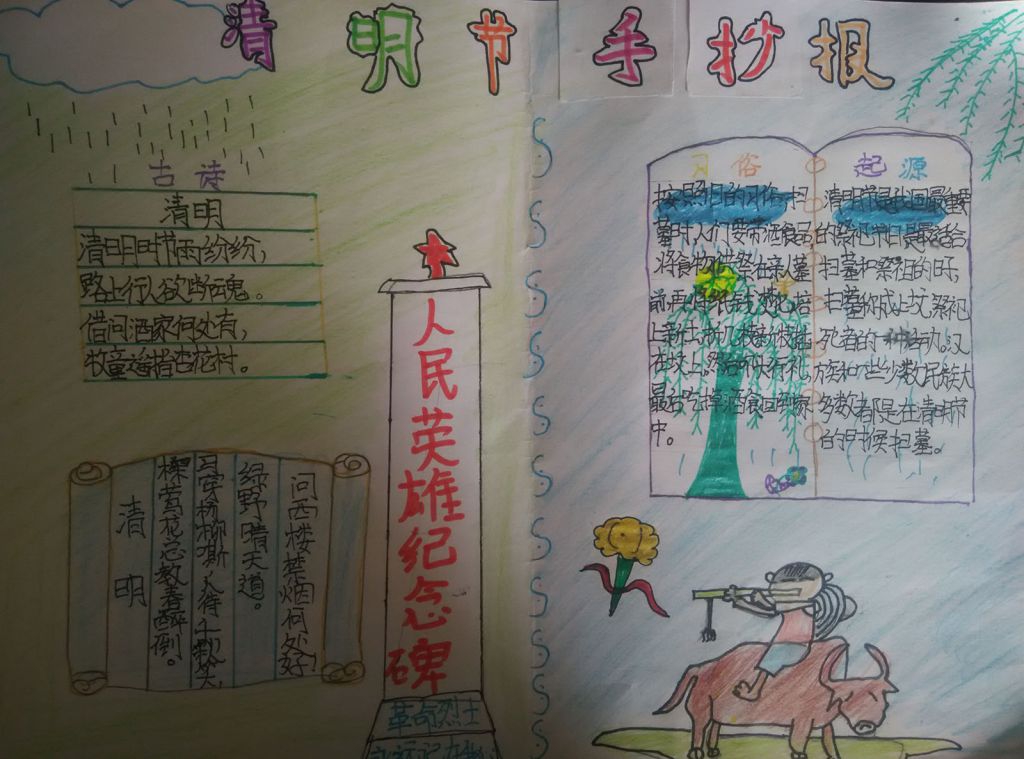 清明节手抄报
古诗
清明
清明时节雨纷纷,
路上行人欲断魂。
借问酒家何处有,
牧童遥指杏花村。
问西楼禁烟何处好
绿野晴天道。
马穿杨柳嘶人
探莺花总教春醉倒。
清明
人民英雄纪念碑
革命烈士
习俗
按照旧的习俗,扫
墓时,人们要带酒食品
将食物供祭在亲人墓
前,再将纸钱焚化,培
上新土,折几枝新枝插
在坟上,然后叩头行礼,
最后吃掉酒食回到家
中。
起源
清明节是我国最重要
的祭祀节日是最适合
扫墓和祭祖的日子,
扫墓你成上坟,祭祀
死者的一种活动。汉
族和一些少数民族大
多数都是在清明节
的时候扫墓。